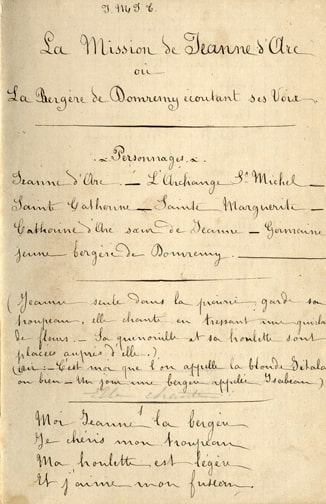 J.M.J.T.
La Mission de Jeanne d'Arc
ou
La Bergère de Domremy écoutant ses Voix.
Personnages.
Jeanne d'Arc. — L'Archange St Michel —
Sainte Catherine — Sainte Marguerite —
Catherine d'Arc sœur de Jeanne — Germaine
jeune bergère de Domremy.
(Jeanne seule dans la prairie, garde son
troupeau, elle chante en tressant une guirlande
de fleurs. — Sa quenouille et sa houlette sont
placées auprès d'elle.)
(air :— C'est moi que l'on appelle la blonde
ou bien — Un jour une bergère appelée Isabeau)
Moi Jeanne la bergère
Je chéris mon troupeau
Ma houlette est légère
Et j'aime mon fuseau.